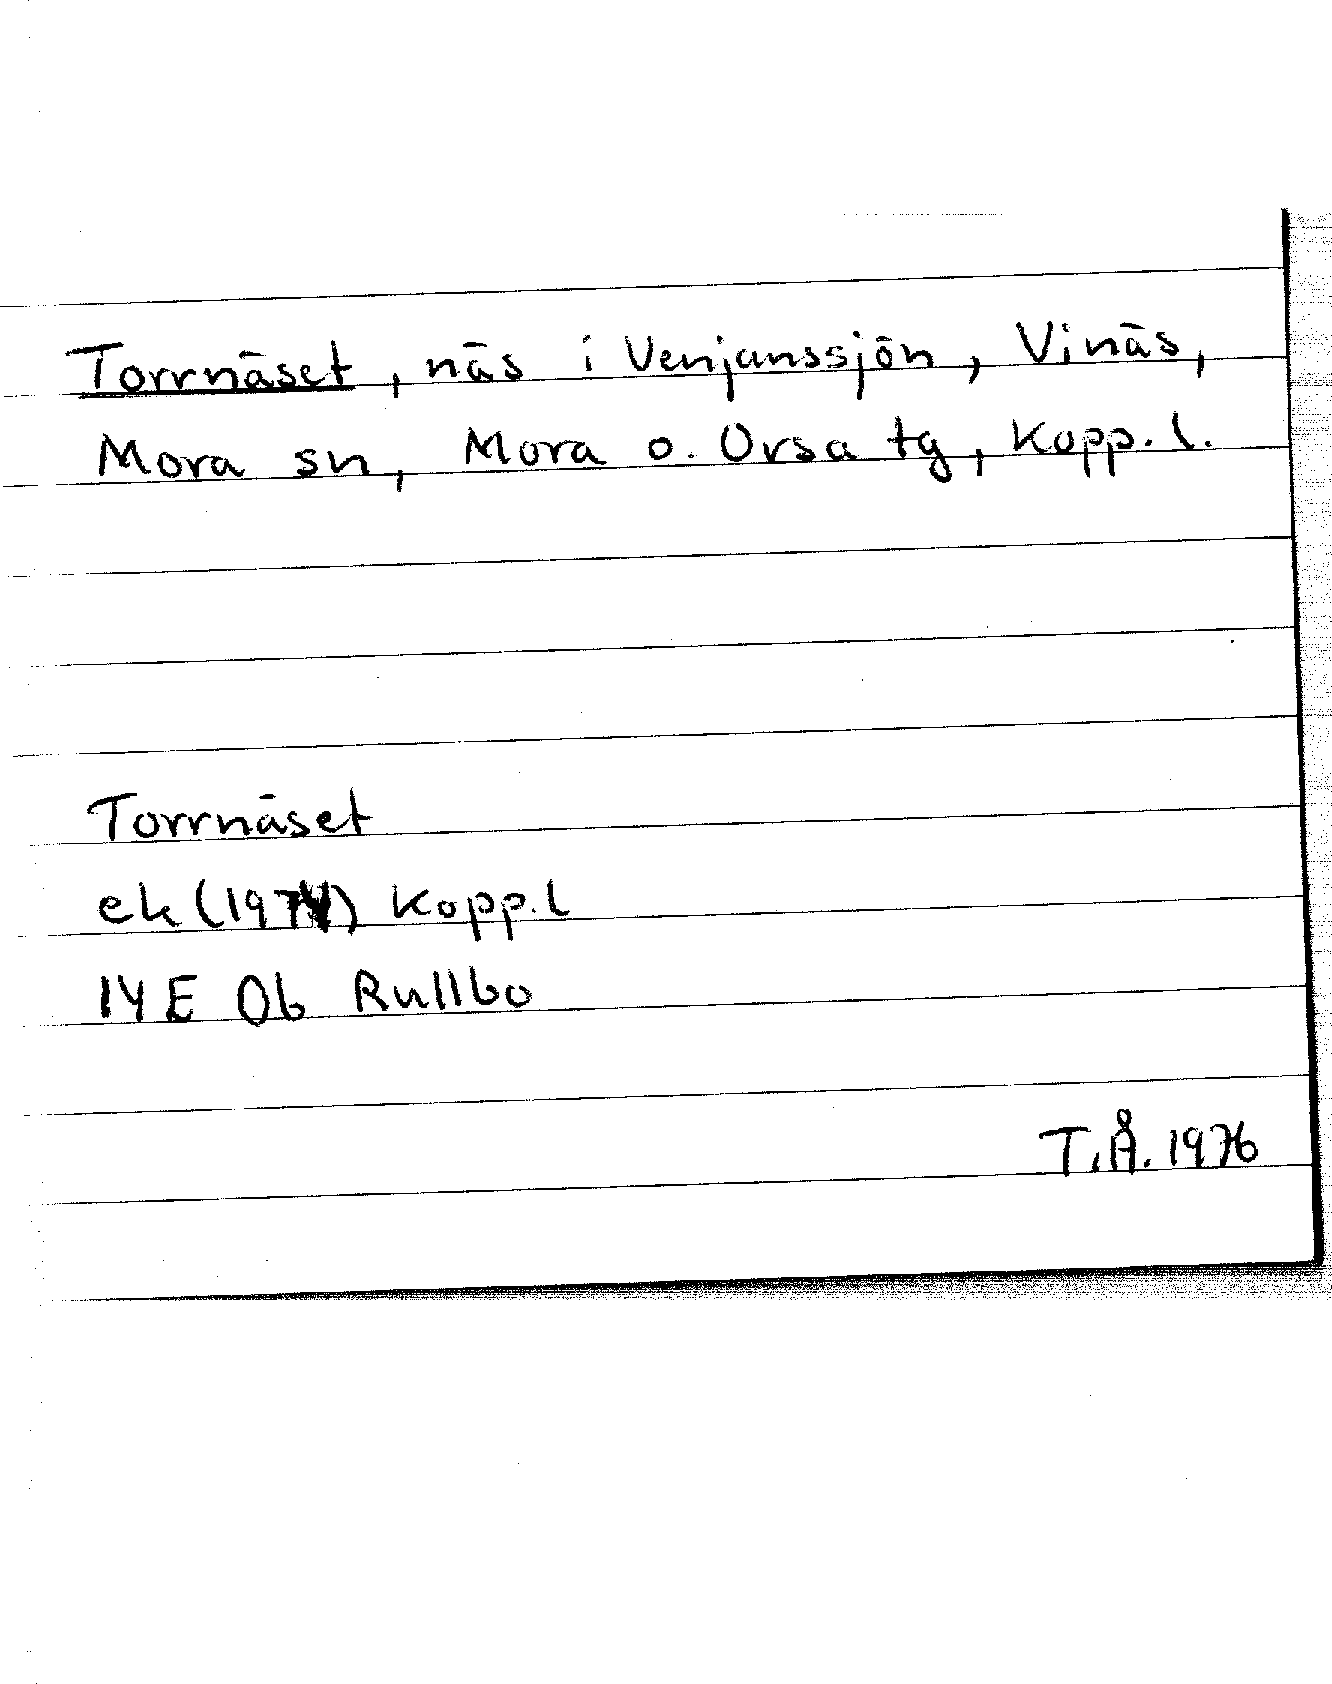 Torrnäset, näs i Venjanssjön, Vinäs,
Mora sn, Mora o. Orsa tg, Kopp. l.
Torrnäset
ek (1974) Kopp.l
14 E 0b Rullbo
T.Å. 1976